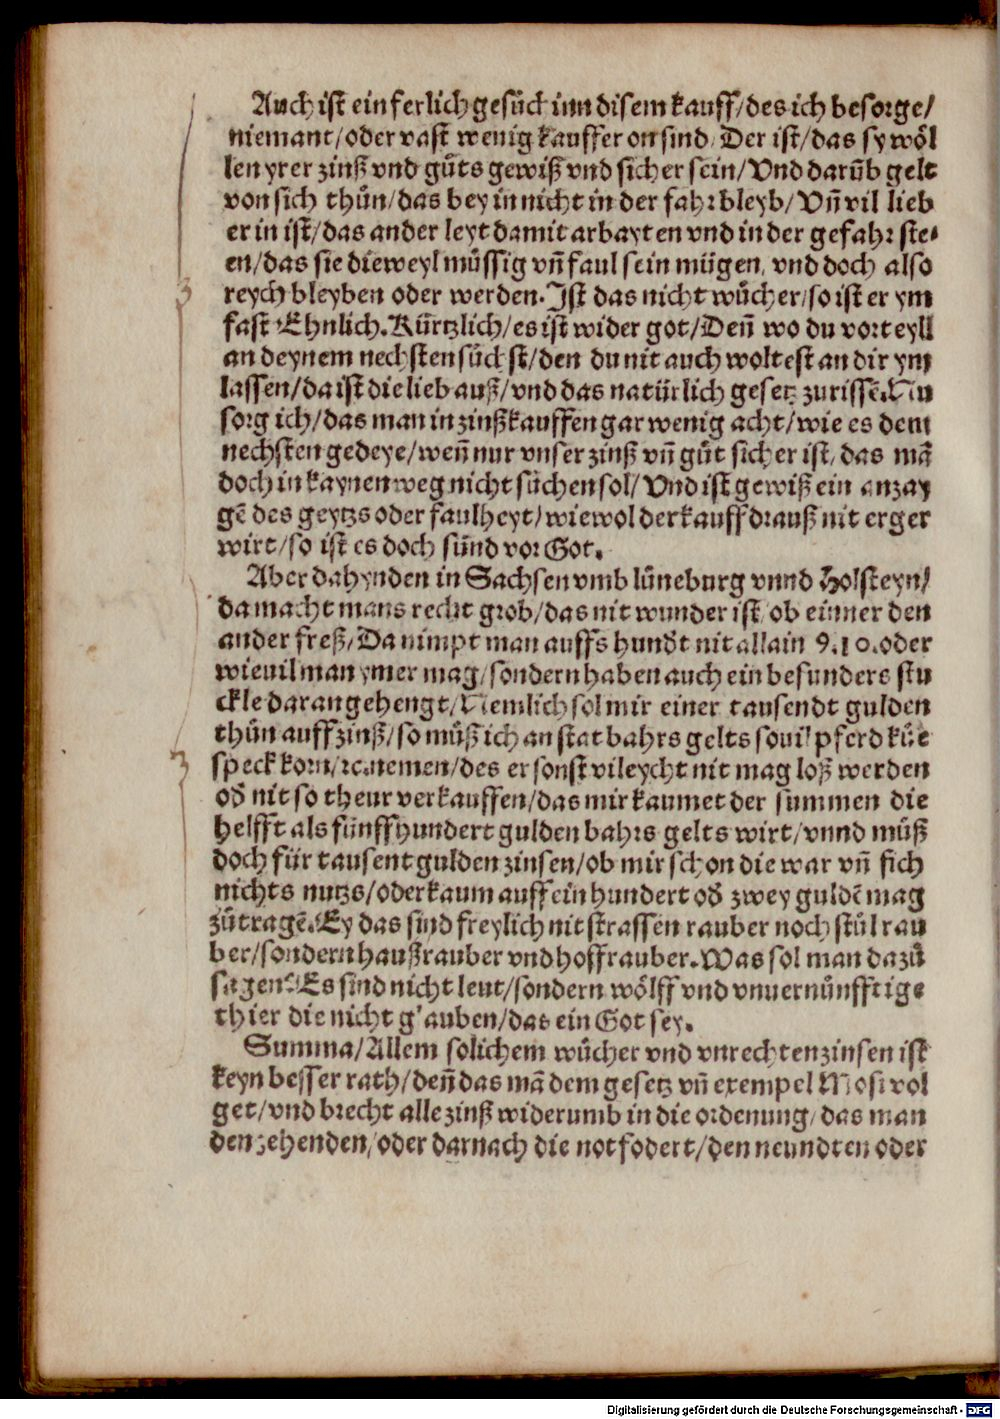 Auch ist ein ferlich gesůch inn disem kauff/des ich besorge/
niemant/oder vast wenig kauffer on sind/Der ist/das sy wôl
len yrer zinß vnd gůts gewiß vnd sicher sein/Vnd darũb gelt
von sich thůn/das bey in nicht in der fahr bleyb/Vñ vil lieb
er in ist/das ander leyt damit arbayten vnd in der gefahr ste⸗
en/das sie dieweyl müssig vñ faul sein mügen/vnd doch also
reych bleyben oder werden. Ist das nicht wůcher/so ist er ym
fast Ehnlich. Kürtzlich/es ist wider got/Deñ wo du vorteyll
an deynem nechsten sůchst/den du nit auch woltest an dir ym
lassen/da ist die lieb auß/vnd das natürlich gesetz zurissẽ. Nu
sorg ich/das man in zinßkauffen gar wenig acht/wie es dem
nechsten gedeye/weñ nur vnser zinß vñ gůt sicher ist/das mã
doch in kaynen weg nicht sůchen sol/Vnd ist gewiß ein anzay
gẽ des geytzs oder faulheyt/wiewol der kauff drauß nit erger
wirt/so ist es doch sünd vor Got.
Aber dahynden in Sachsen vmb lüneburg vnnd Holsteyn/
da macht mans recht grob/das nit wunder ist/ob einner den
ander freß/Da nimpt man auffs hundt nit allain 9.10.oder
wieuil man ymer mag/sondern haben auch ein besunders stu
ckle daran gehengt/Nemlich sol mir einer tausendt gulden
thůn auff zinß/so můß ich an stat bahrs gelts souil pferd küe
speck korn/ꝛc.nemen/des er sonst vileycht nit mag loß werden
od̃ nit so theur verkauffen/das mir kaumet der summen die
helfft als fünffhundert gulden bahrs gelts wirt/vnnd můß
doch für tausent gulden zinsen/ob mir schon die war vñ fich
nichts nutzs/oder kaum auff ein hundert od̃ zwey guldẽ mag
zůtragẽ. Ey das sind freylich nit strassen rauber noch stůl rau
ber/sondern haußrauber vnd hoffrauber. Was sol man dazů
sagen? Es sind nicht leut/sondern wôlff vnd vnuernünfftige
thier die nicht glauben/das ein Got sey.
Summa/Allem solichem wůcher vnd vnrechten zinsen ist
keyn besser rath/deñ das mã dem gesetz vñ exempel Mosi vol
get/vnd brecht alle zinß widerumb in die ordenung/das man
den zehenden/oder darnach die not fodert/den neundten oder
Digitalisierung gefördert durch die Deutsche Forschungsgemeinschaft - DFG